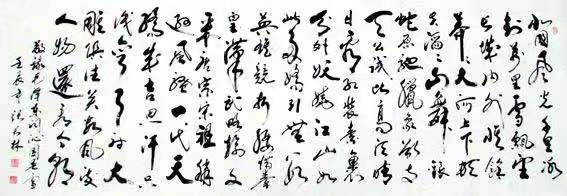 北国风光千里冰
封万里雪飘望
长城内外惟余
莽莽大河上下顿
失滔滔山舞银
蛇原驰蜡象欲与
天公试比高须晴
日看红装素裹
分外妖娆江山如
此多娇引无数
英雄竞折腰惜秦
皇汉武略输文
采唐宗宋祖稍
逊风骚一代天
骄成吉思汗只
识弯弓射大
雕俱往矣数风流
人物还看今朝
敬录毛泽东词沁园春雪
壬辰年